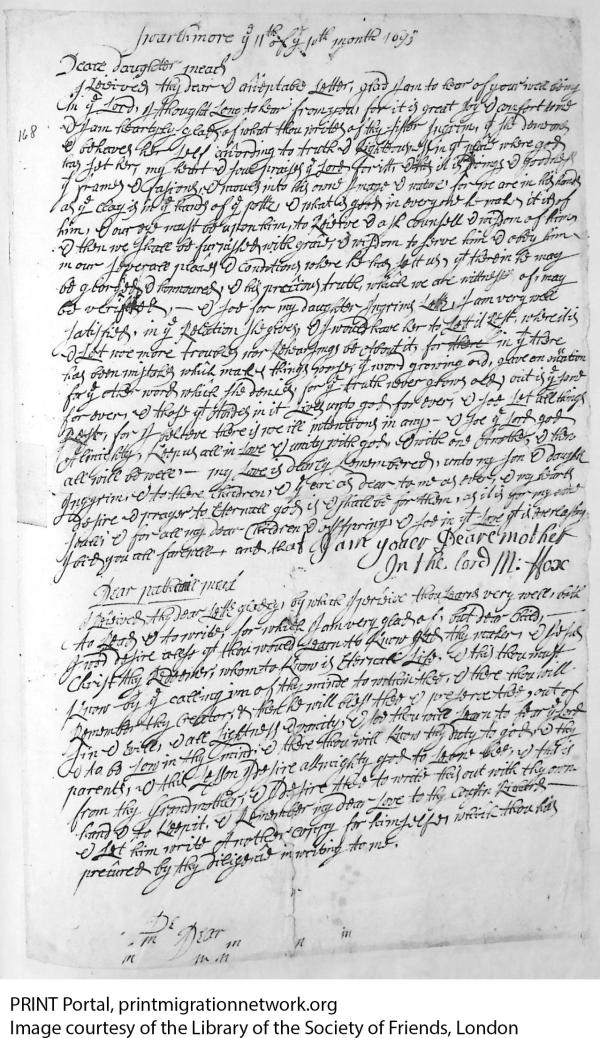 Swarthmore ye 11th of ye 10th month 1695
Deare daughter mead
I Received thy dear & acceptable Letter, glad I am to hear of your well being
in ye Lord, I thought Long to hear from you, for it is great Joy & comfort to me
168
& I am heartyly glad of what thou writes of thy sister Ingrim, yt she demeans
& behaves her self according to truth & Righteousness in ye place where god
has set her, my heart & soul praises ye Lord for itt, & it is things & goodness
yt frames & fasions & moulds into his owne Image & nature for we are in his hands
as ye clay is in ye hands of ye potter & what is good in every one he makes it its of
him, & our eye must be upon him, to Receive & ask counsell & wisdom of him
& then we shall be furnished with grace & wisdom to serve him & obey him
in our severall places & conditions where he has set us, yt therein he may
be glorifyed & honnoured, & his precious truth, which we are witnesses of, may
be — & soe for my daughter Ingrims Letter, I am very well
satisfied, in ye Relation she gives, & I would have her to Lett it Rest, where it is
& Let noe more troubles nor Rehearsings be about itt, for in yt there
has been mistakes which makes things worse, ye word growing old, gave an occation
for ye other word which she denies, for ye truth never grows old, but is ye same
for ever, & those yt abides in it Lives unto god for ever, & soe Let all things
Rest, for I believe there is noe ill intentions in any — & soe ye Lord god
Almighty, keep us all in Love & unity with god, & with one another, & then
all will be well, — my Love is dearly Remembered, unto my son & daughter
Ingrim, & to there children, & are as dear to me as ever, & my hearts
desire & prayer to Eternall god is & shall be for them, as it is for my owne
soull & for all my dear children & offspring & soe in yt Love yt is everlasting
I bid you all farewell, and that I am youer Deare mother
In the Lord M: ffox
Dear nathaniel mead
I Received thy dear Letter, by which I perceive thou Learns very well, both
to Read & to write, for which I am very glad of, but dear Child,
I would desire allsoe yt thou would Learn to know god thy maker, & Jesus
Christ thy Redeemer, whom to know is Eternall Life, & this thou must
know by ye calling in of thy minde to within thee, & there thou will
Remember thy Creator, & there he will bless thee & preserve thee, out of
sin & evill, & all Lightness & vanity, & soe thou will Learn to fear ye Lord
& to be Low in thy mind, & there thou will know thy duty to god, & thy
parents, & this Lesson I desire allmighty god to Learne thee, & this is
from thy Grandmother, & I desire thee to write this out with thy own
hand & to keep it, & Remember my dear Love to thy Cozin Richard
& Let him write Another Coppy for himselfe, which thou has
procured by thy diligence in writing to me.
De
m Dear
m n m
m m n
PRINT Portal, printmigrationnetwork.org
Image courtesy of the Library of the Society of Friends, London